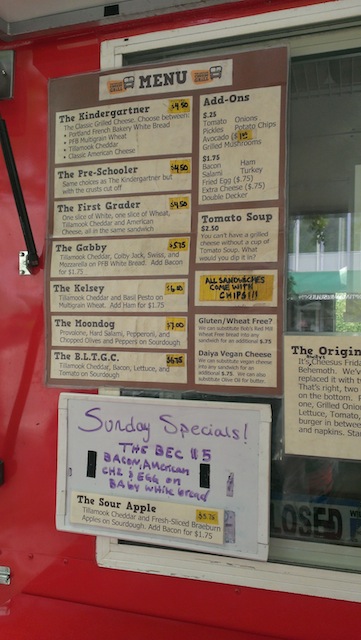 MENU
The Kindergartner $4.50
The Classic Grilled Cheese, Choose between:
• Portland French Bakery White Bread
• PFB Multigrain Wheat
• Tillamook Cheddar
• Classic American Cheese
The Pre-Schooler $4.50
Same choices as The Kindergartner but
with the crusts cut off
The First Grader $4.50
One slice of White, one slice of Wheat,
Tillamook Cheddar and American
Cheese, all in the same sandwich
The Gabby $5.75
Tillamook Cheddar, Colby Jack, Swiss, and
Mozzarella on PFB White Bread. Add Bacon
for $1.75
The Kelsey
Tillamook Cheddar and Basil Pesto on
Multigrain Wheat. Add Ham for $1.75
The Moondog $7.00
Provolone, Hard Salami, Pepperoni, and
Chopped Olives and Peppers on Sourdough
The B.L.T.G.C. $6.75
Tillamook Cheddar, Bacon, Lettuce, and
Tomato on Sourdough
Add-Ons
$.25
Tomato Onions
Pickles Potato Chips
Avocado $1.00
Grilled Mushrooms
$1.75
Bacon Ham
Salami Turkey
Fried Egg ($.75)
Extra Cheese ($.75)
Double Decker
Tomato Soup
$2.50
You can't have a grilled
cheese without a cup of
Tomato Soup. What
would you dip it in?
ALL SANDWICHES
COME WITH
CHIPS!!!
Gluten/Wheat Free?
We can substitute Bob's Red Mill
Wheat Free bread into any
sandwich for an additional $.75
Daiya Vegan Cheese
We can substitute vegan cheese
into any sandwich for an
additional $.75. We can also
substitute Olive Oil for butter.
Sunday Specials!
THE BEC $5
BACON, American
CHZ & EGG on
BABY White bread
The Sour Apple $5.75
Tillamook Cheddar and Fresh-Sliced Braeburn
Apples on Sourdough. Add Bacon for $1.75
The Origin
It's Cheesus Frida
Behemoth. We've
replaced it with t
That's right, two
on the bottom. F
one, Grilled Onion
Lettuce, Tomato,
burger in between
and napkins. Star
LOSED